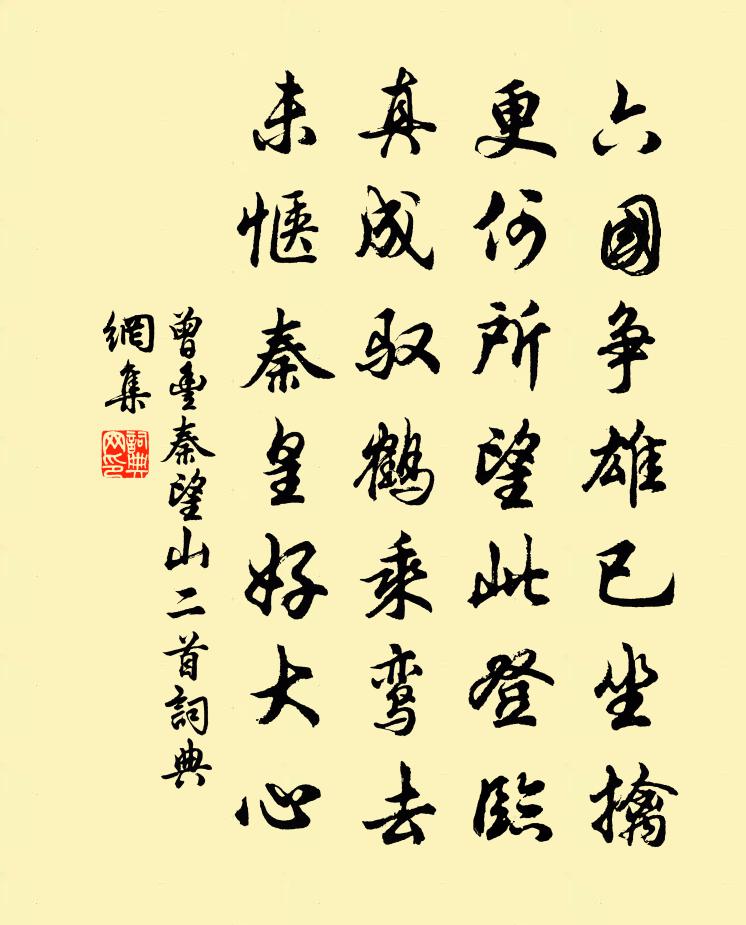 六國争雄已坐擒
更何所望此登臨
真成驭鹤乘鸾去
未惬秦皇好大心
曾豐秦望山二首詞典
網集
詞典
网印